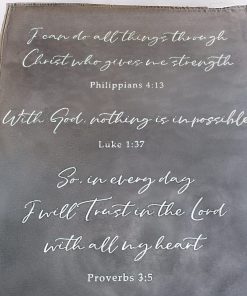 I can do all things through
Christ who gives me strength
Philippians 4:13
With God, nothing is impossible
Luke 1:37
So, in every day
I will Trust in the Lord
with all my heart
Proverbs 3:5